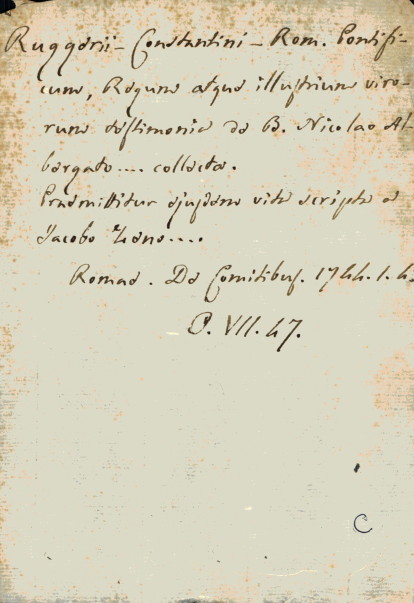 Ruggerii - Constantini - Rom. Pontifi-
cum, Regum atque illustrium viro-
rum testimonia de B. Nicolao Al-
bergato .... collecta.
Praemittitur ejusdem vita scripta a
Jacobo Zeno ....
Romae. De Comitibus. 1744. 1. 4.
C. VII. 47.
C